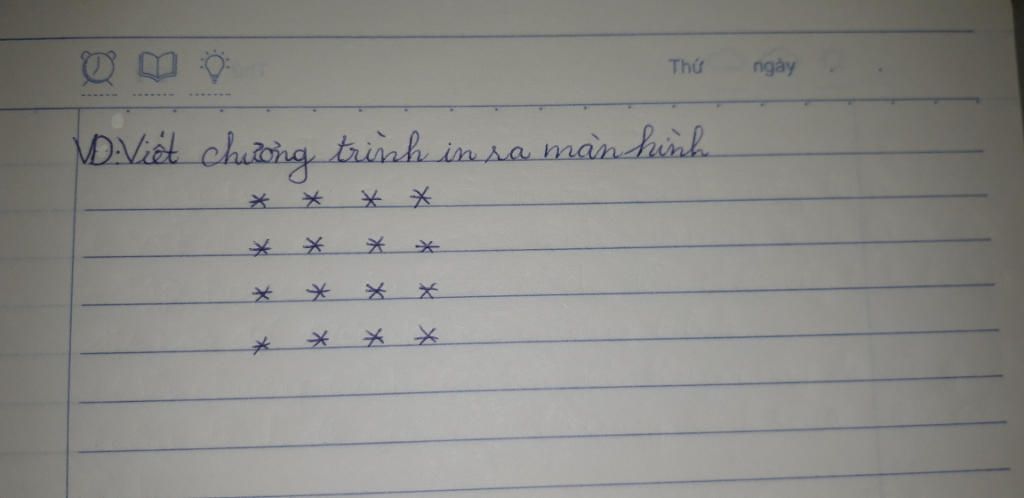 Thứ ngày . .
VD: Viết chương trình in ra màn hình
* * * *
* * * *
* * * *
* * * *